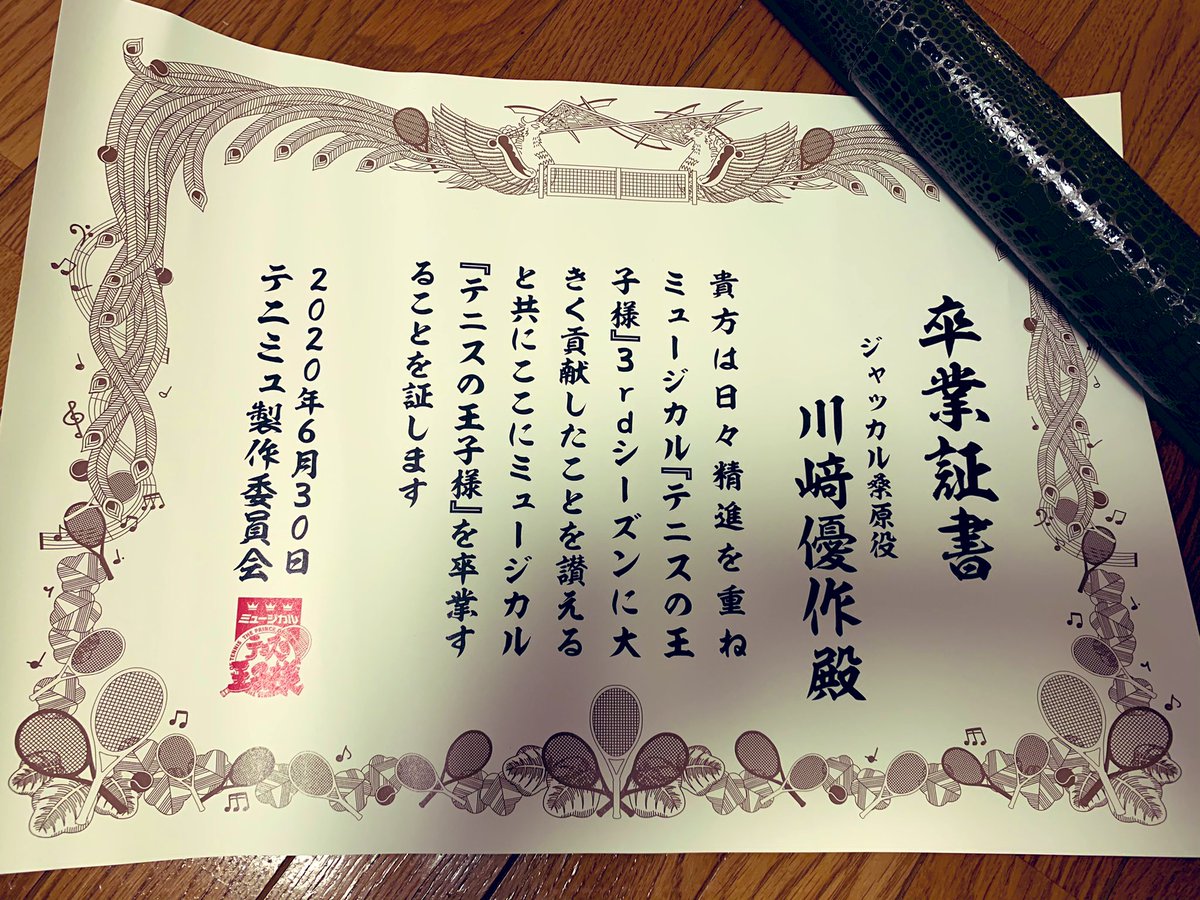 卒業証書
ジャッカル桑原役
川﨑優作殿
貴方は日々精進を重ね
ミュージカル『テニスの王
子様』3rdシーズンに大
きく貢献したことを讃える
と共にここにミュージカル
『テニスの王子様』を卒業す
ることを証します
2020年6月30日
テニミュ製作委員会
ミュージカル
テニスの
王子様